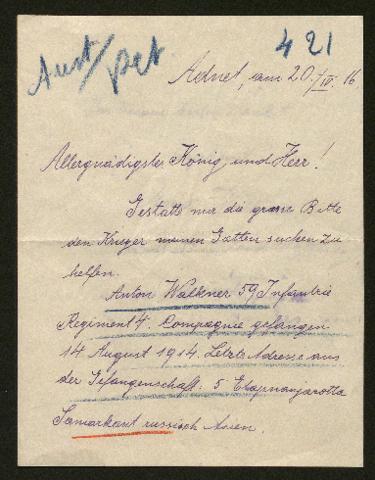 Aust/pet
421
Adnet, am 20./IV. 16
Allergnädigster König und Herr!
Gestatte mir die grosse Bitte
den Krieger meinen Gatten suchen zu
helfen.
Anton Walkner 59 Infantrie
Regiment 4. Compagnie gefangen
14 August 1914. Letzte Adresse aus
der Gefangenschaft: 5 Etapnanjarotta
Samarkant russisch Asien.